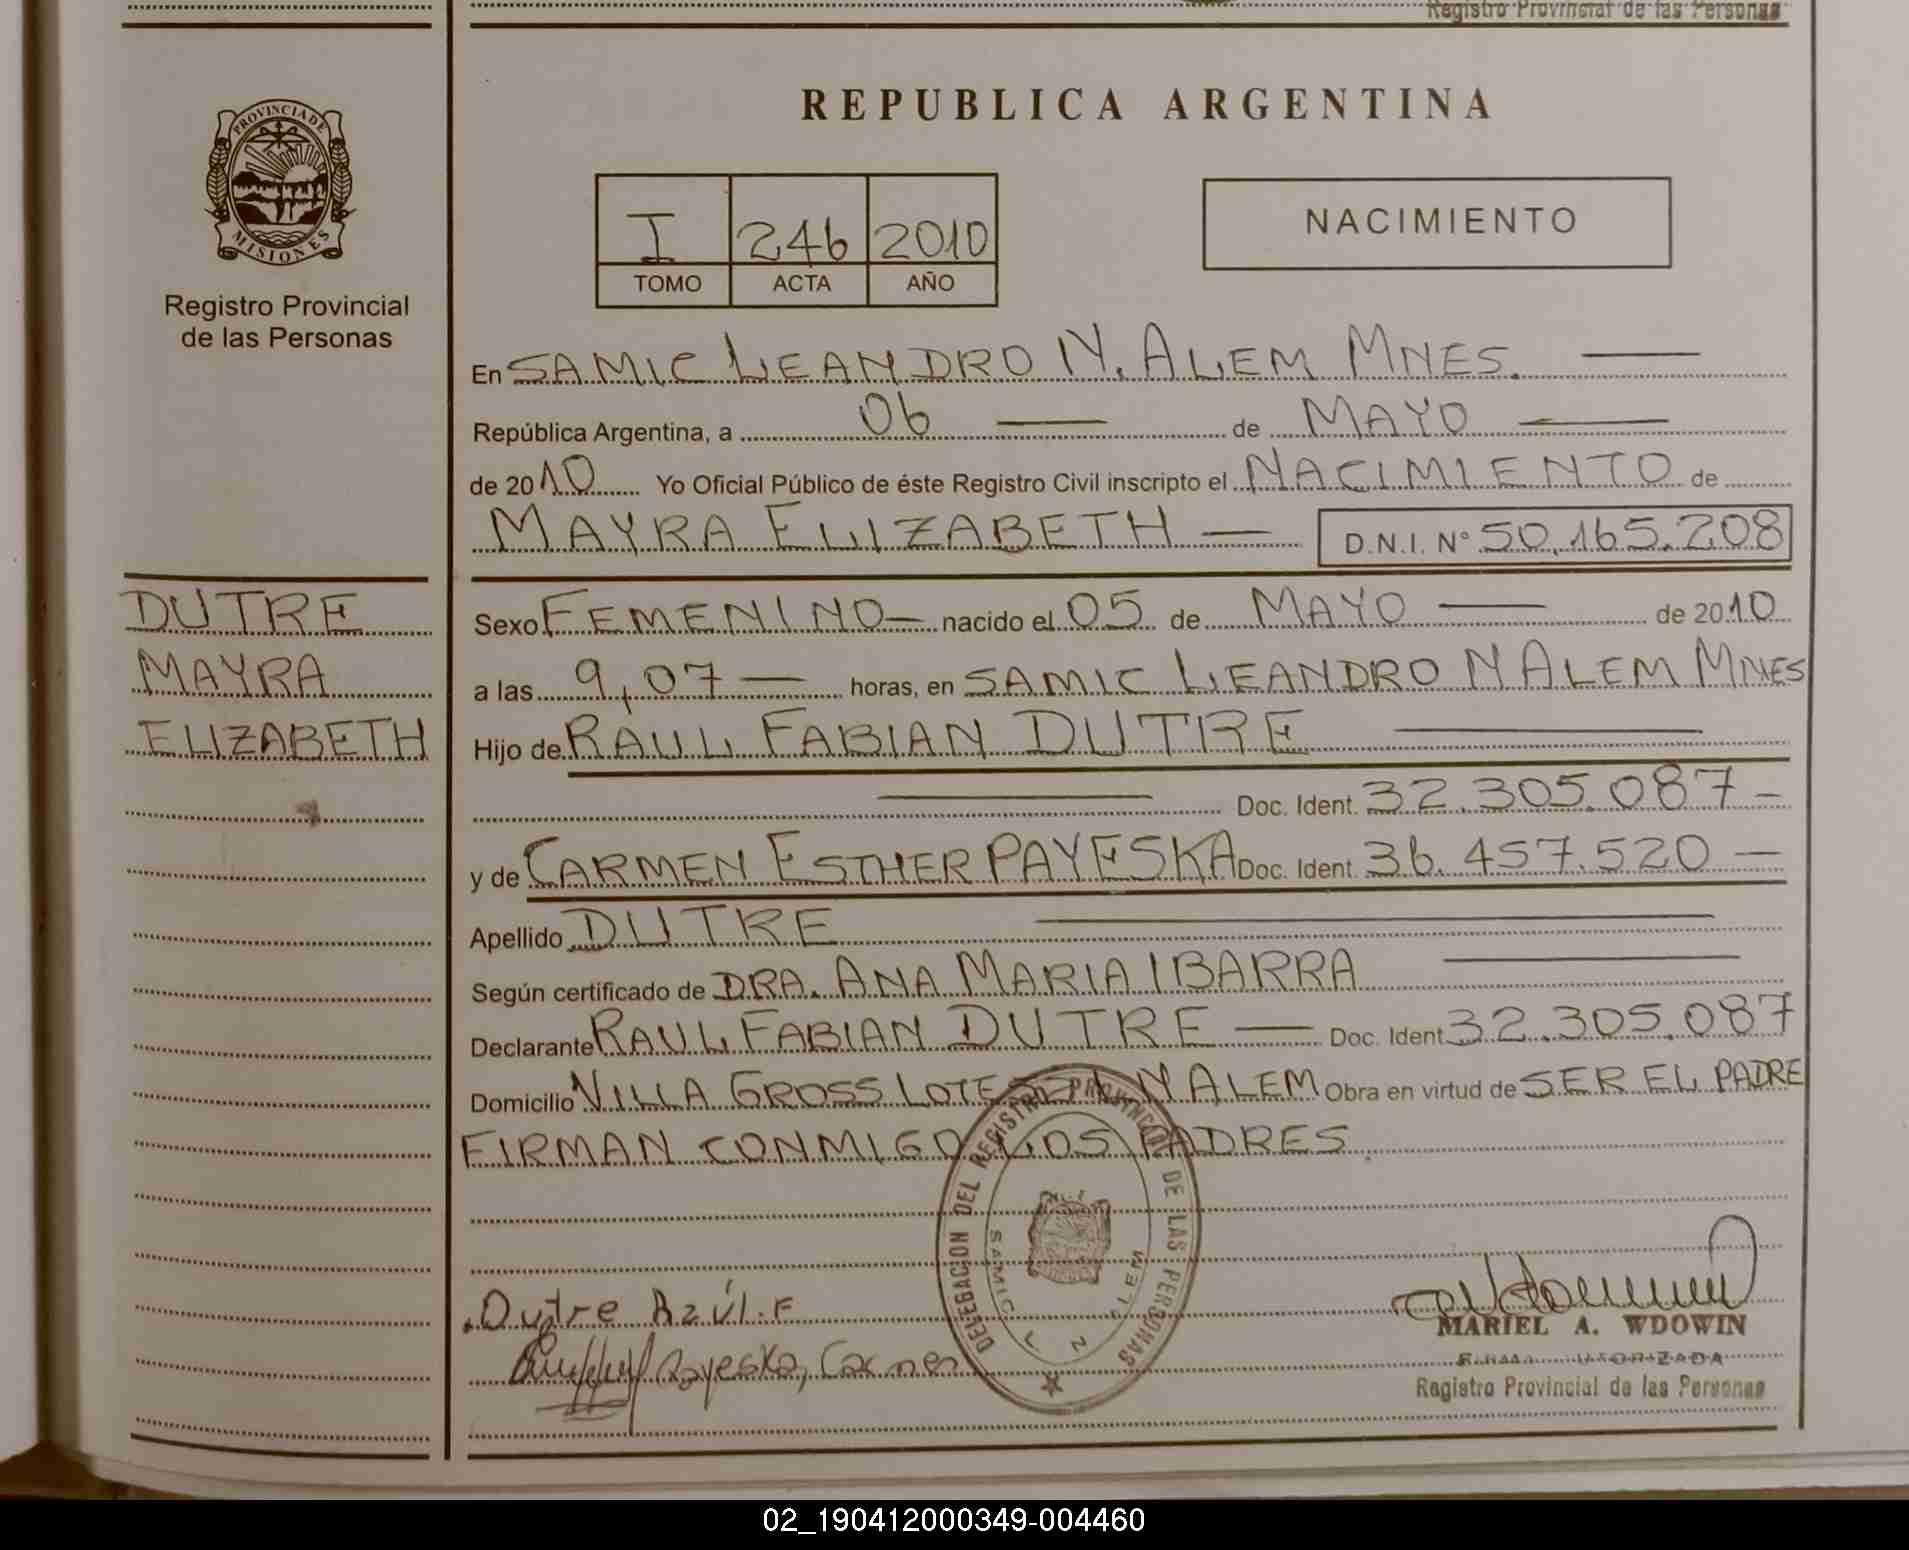 Registro Provincial de las Personas
PROVINCIA DE
MISIONES
Registro Provincial
de las Personas
REPUBLICA ARGENTINA
I 246 2010
TOMO ACTA AÑO
NACIMIENTO
En SAMIC LEANDRO N. ALEM MNES.
República Argentina, a 06 de MAYO
de 2010 Yo Oficial Público de éste Registro Civil inscripto el NACIMIENTO de
MAYRA ELIZABETH — D.N.I. N° 50.165.208
DUTRE
MAYRA
ELIZABETH
Sexo FEMENINO — nacido el 05 de MAYO — de 2010
a las 9,07 — horas, en SAMIC LEANDRO N ALEM MNES
Hijo de RAUL FABIAN DUTRE
Doc. Ident. 32.305.087 —
y de CARMEN ESTHER PAYESKA Doc. Ident. 36.457.520 —
Apellido DUTRE
Según certificado de DRA. ANA MARIA IBARRA
Declarante RAUL FABIAN DUTRE — Doc. Ident. 32.305.087
Domicilio VILLA GROSS LOTE N ALEM Obra en virtud de SER EL PADRE
FIRMAN CONMIGO LOS PADRES
DELEGACION DEL REGISTRO PROVINCIAL DE LAS PERSONAS
SAMIC L N ALEM
Dutre Raúl.F
Payeska, Carmen
MARIEL A. WDOWIN
FIRMA AUTORIZADA
Registro Provincial de las Personas
02_190412000349-004460